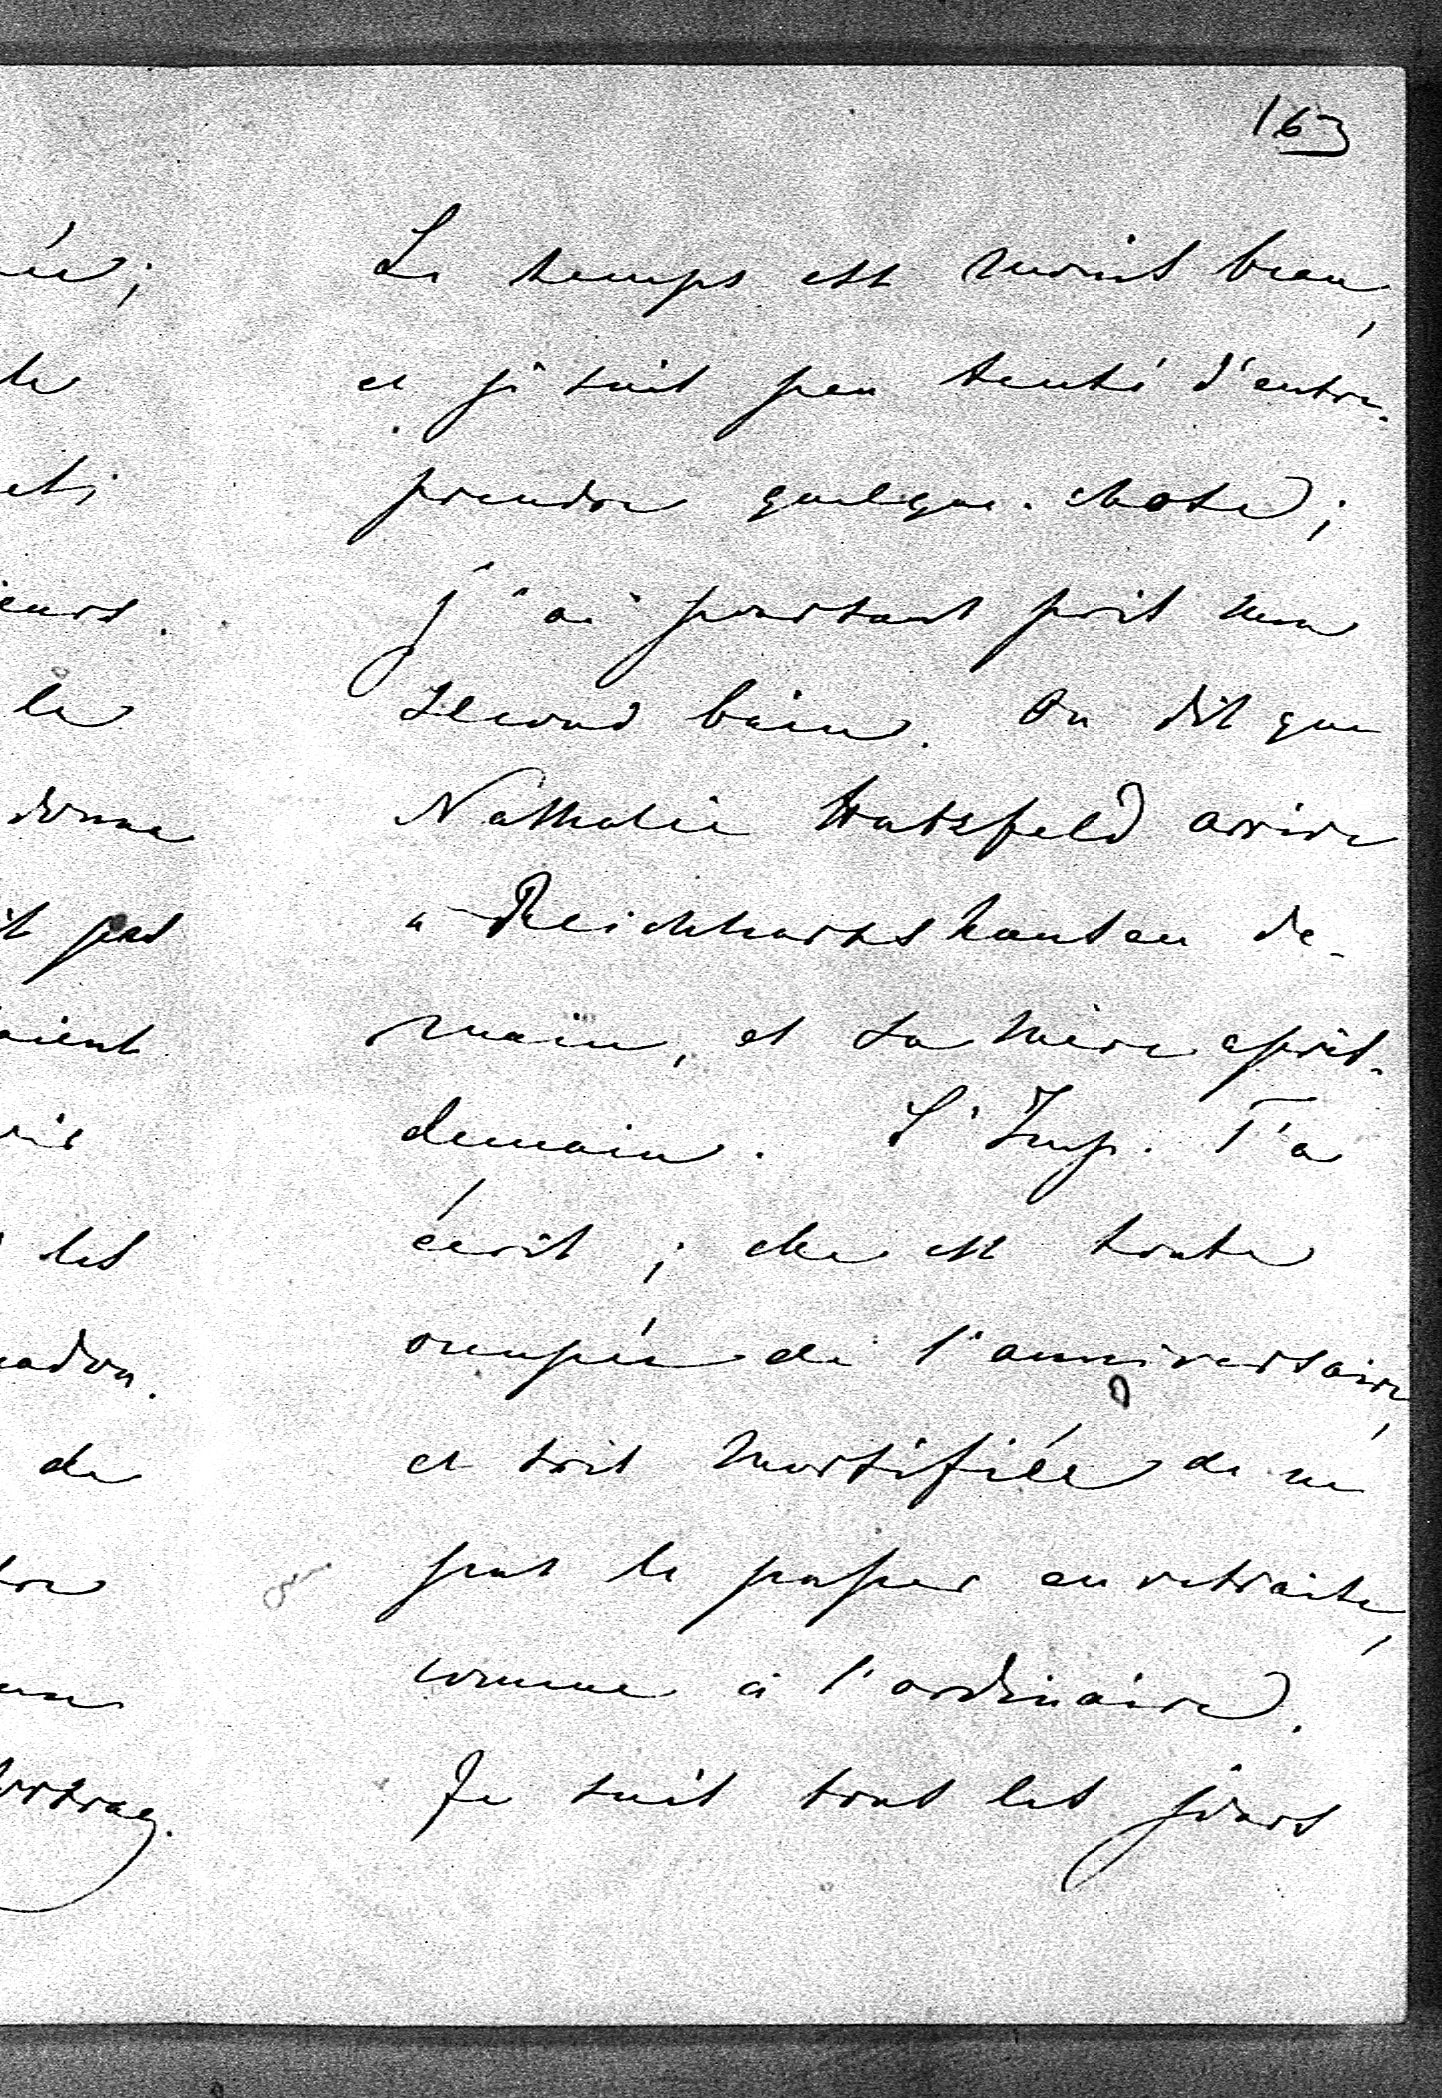 163
Le temps est moins beau,
et je suis peu tenté d'entre-
prendre quelque-chose;
j'ai pourtant pris mon
second bain. On dit que
Nathalie Hatzfeld arrive
à Reichhartshausen de-
main, et sa mère après-
demain. L'Imp. t'a
écrit; elle est toute
occupée de l'anniversaire,
et très mortifiée de ne
pas le passer en retraite,
comme à l'ordinaire.
Je suis tous les jours
le
eurs.
le
donne
pas
aient
les
de